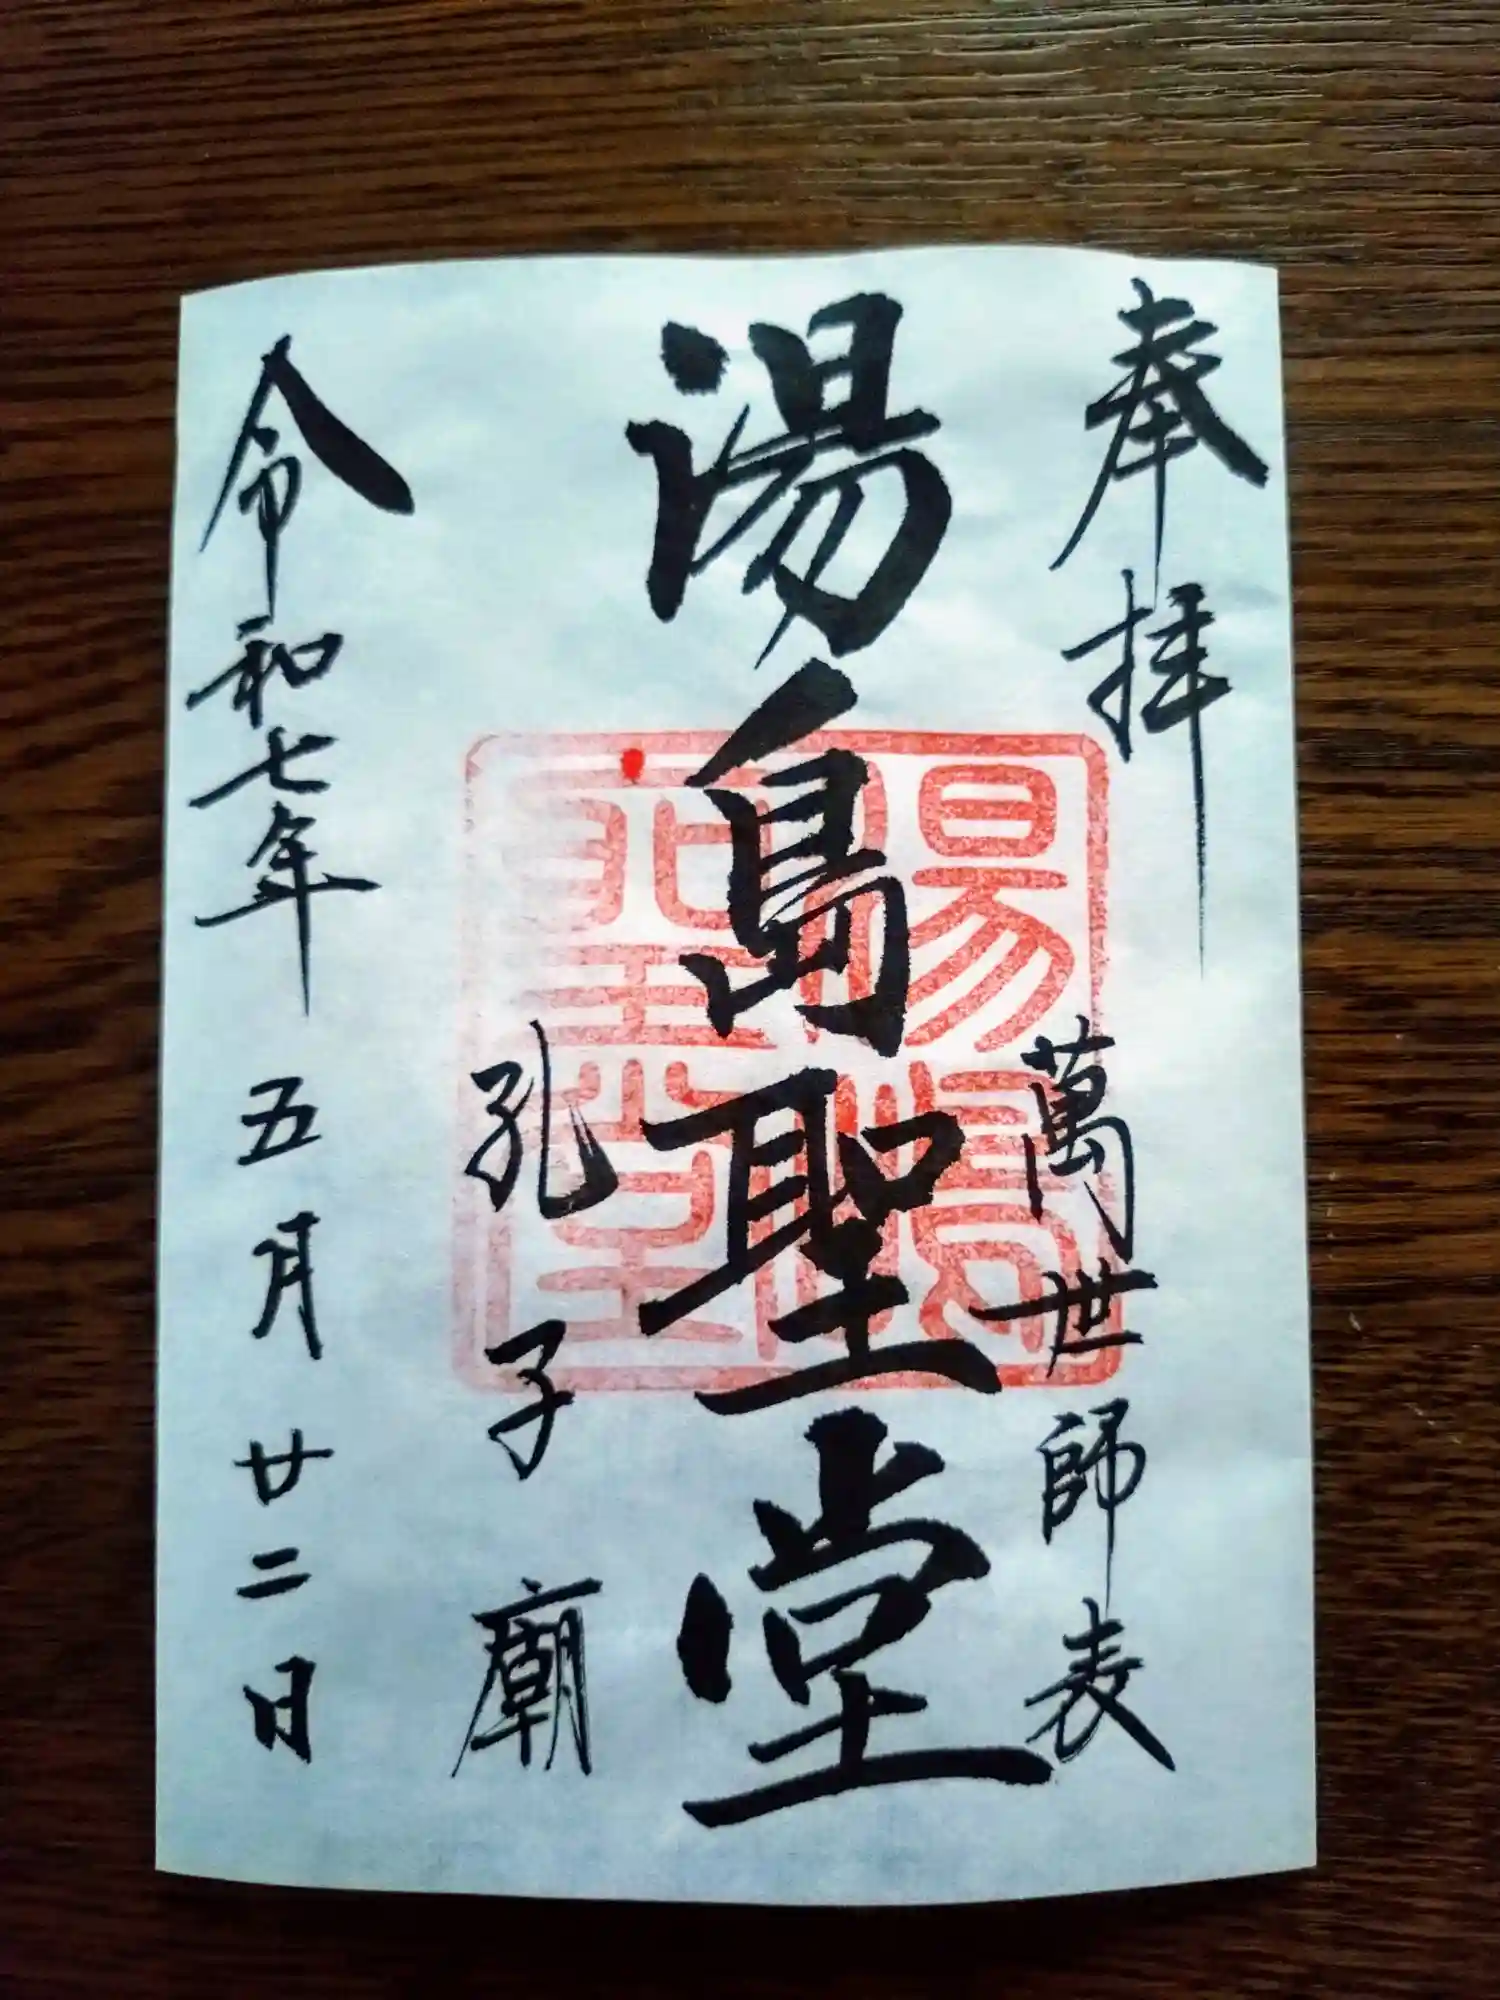 奉拝
萬世師表
湯島聖堂
湯島聖堂
孔子廟
令和七年五月廿二日